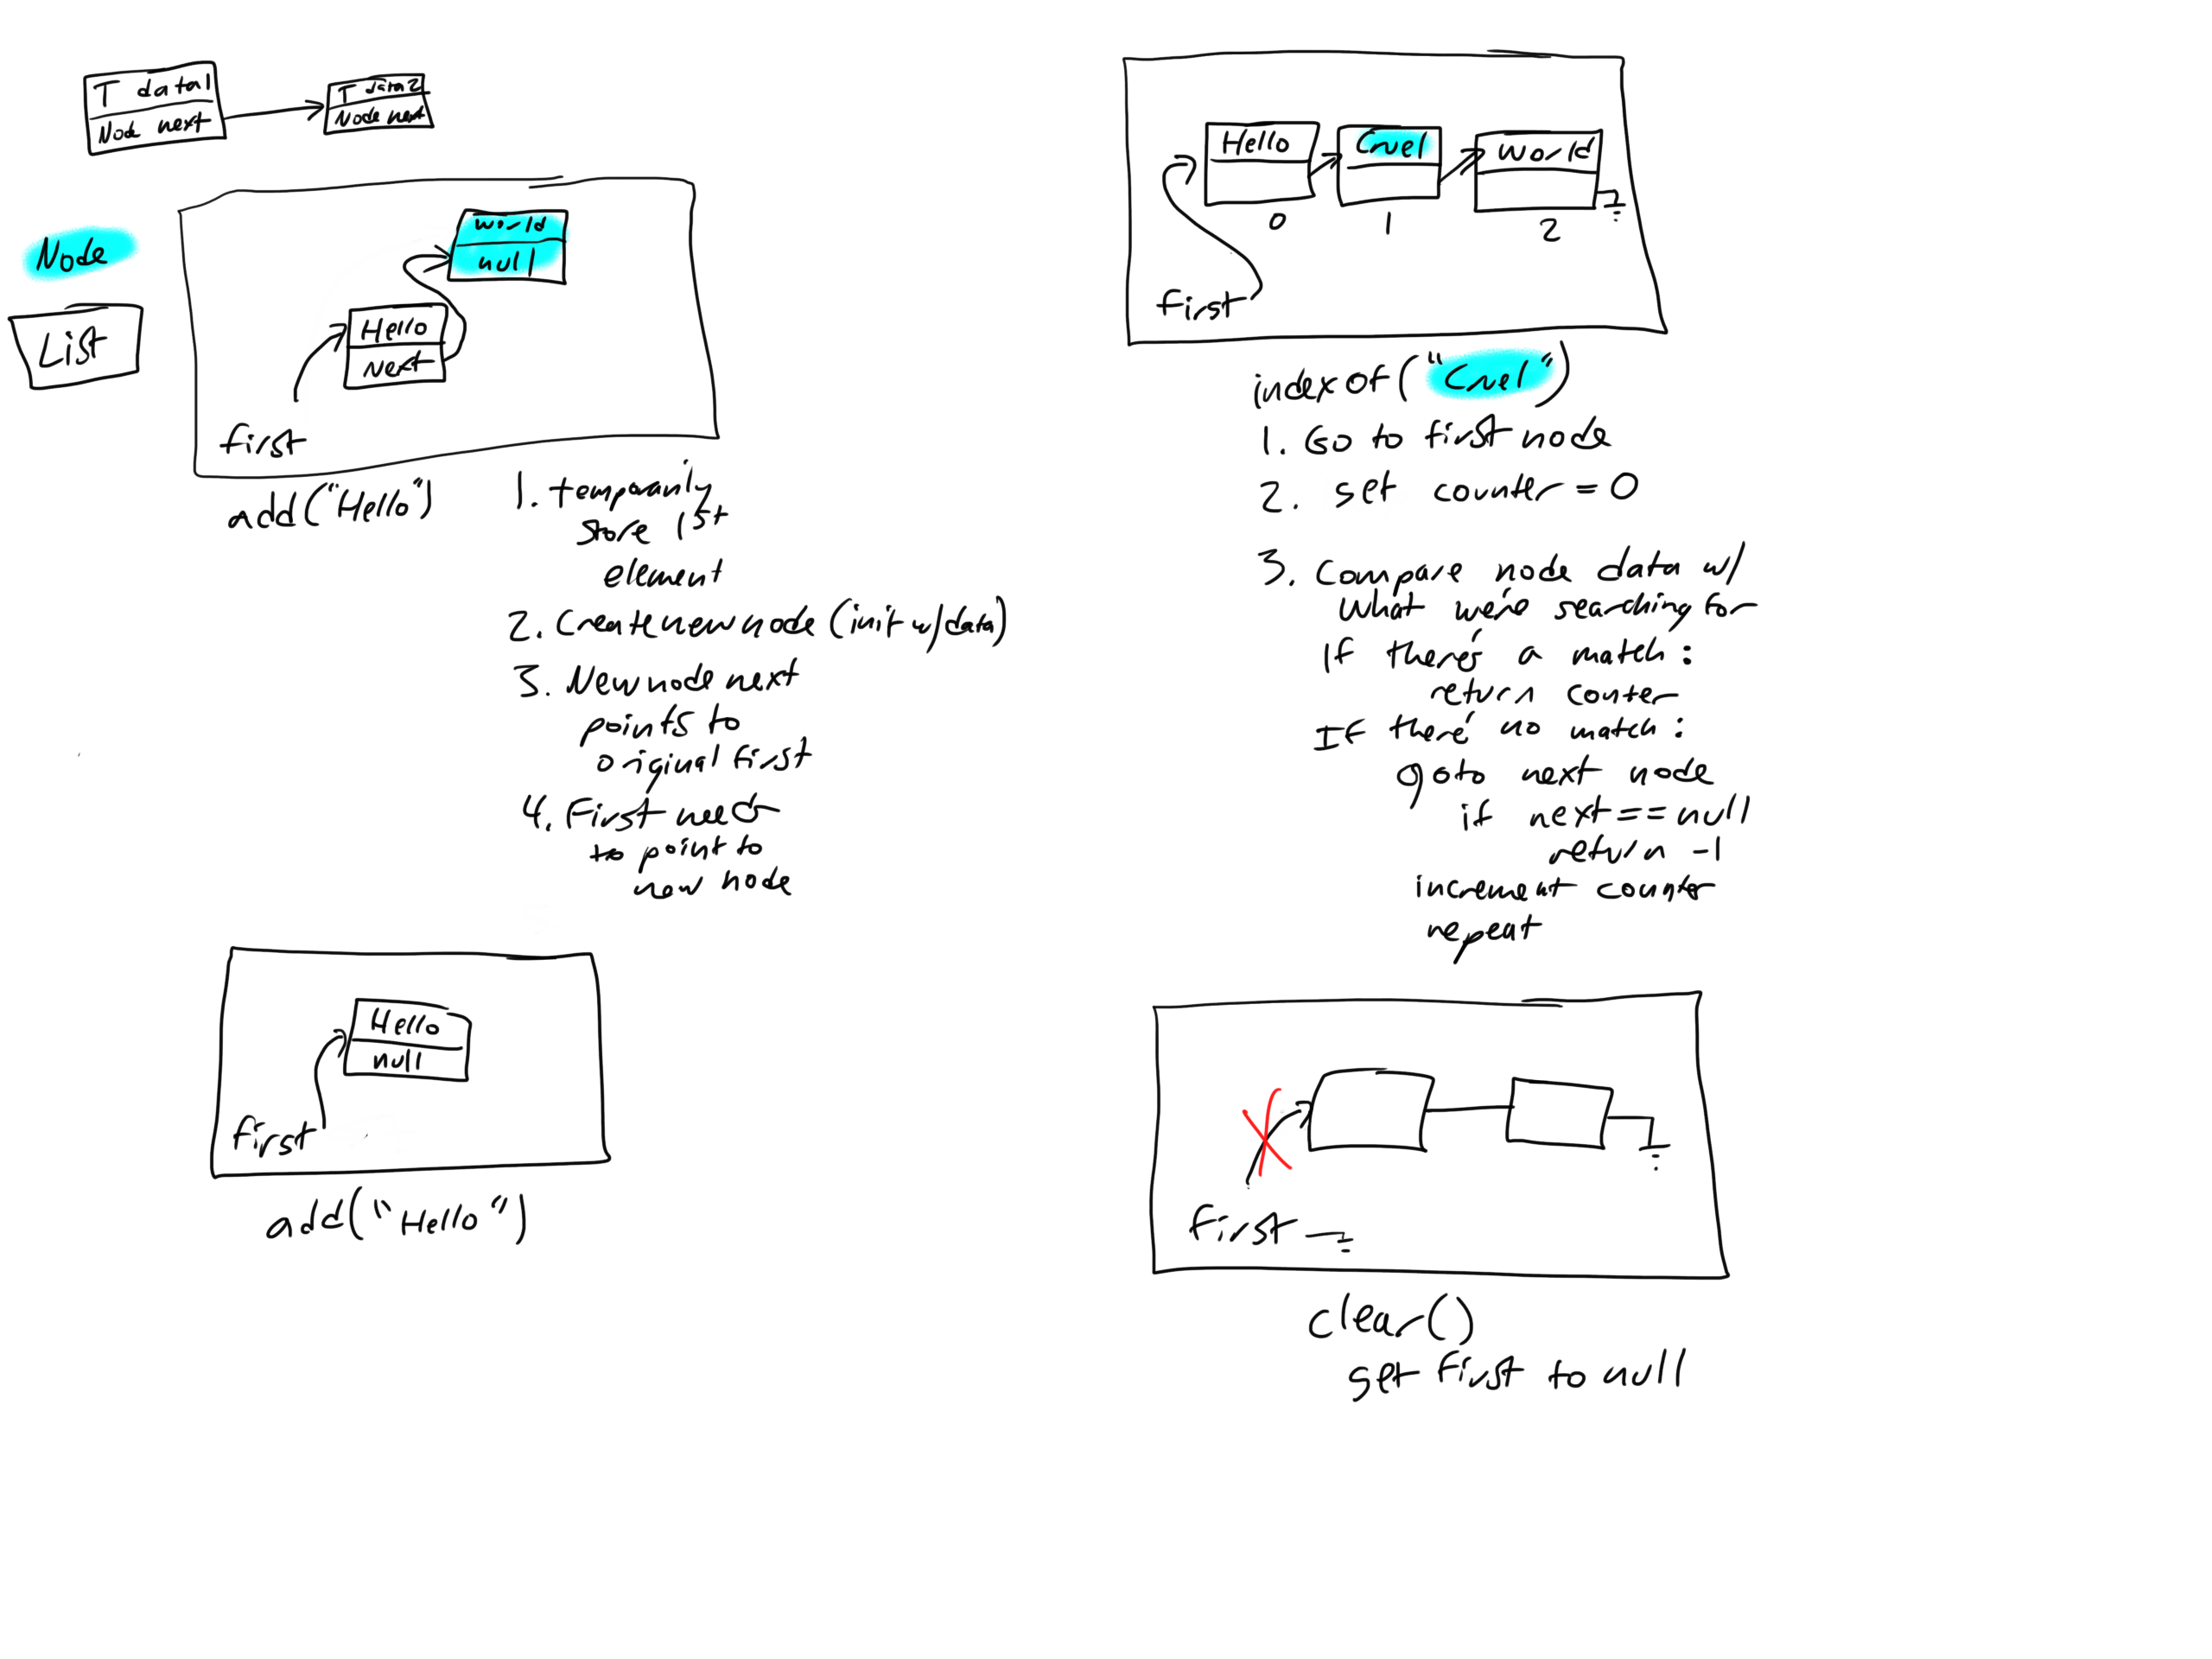 T data1
Node next
T data2
Node next
Node
List
world
null
Hello
next
first
add("Hello")
1. temporarily
store 1st
element
2. Create new node (init w/data)
3. New node next
points to
original first
4. First needs
to point to
new node
Hello
null
first
add("Hello")
Hello
Cruel
World
0
1
2
first
index of ("Cruel")
1. Go to first node
2. set counter = 0
3. Compare node data w/
what we're searching for
If there's a match:
return counter
If there' no match:
goto next node
if next == null
return -1
increment counter
repeat
first
clear()
set first to null